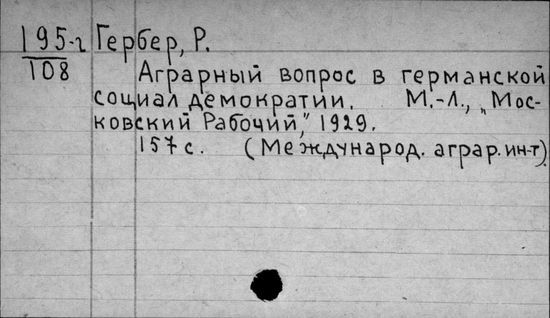 195-г Гербер, Р.
108 Аграрный вопрос в германской
социал демократии. М.-Л., „Мос-
ковский Рабочий," 1929.
157 с. (Международ. аграр. ин-т).